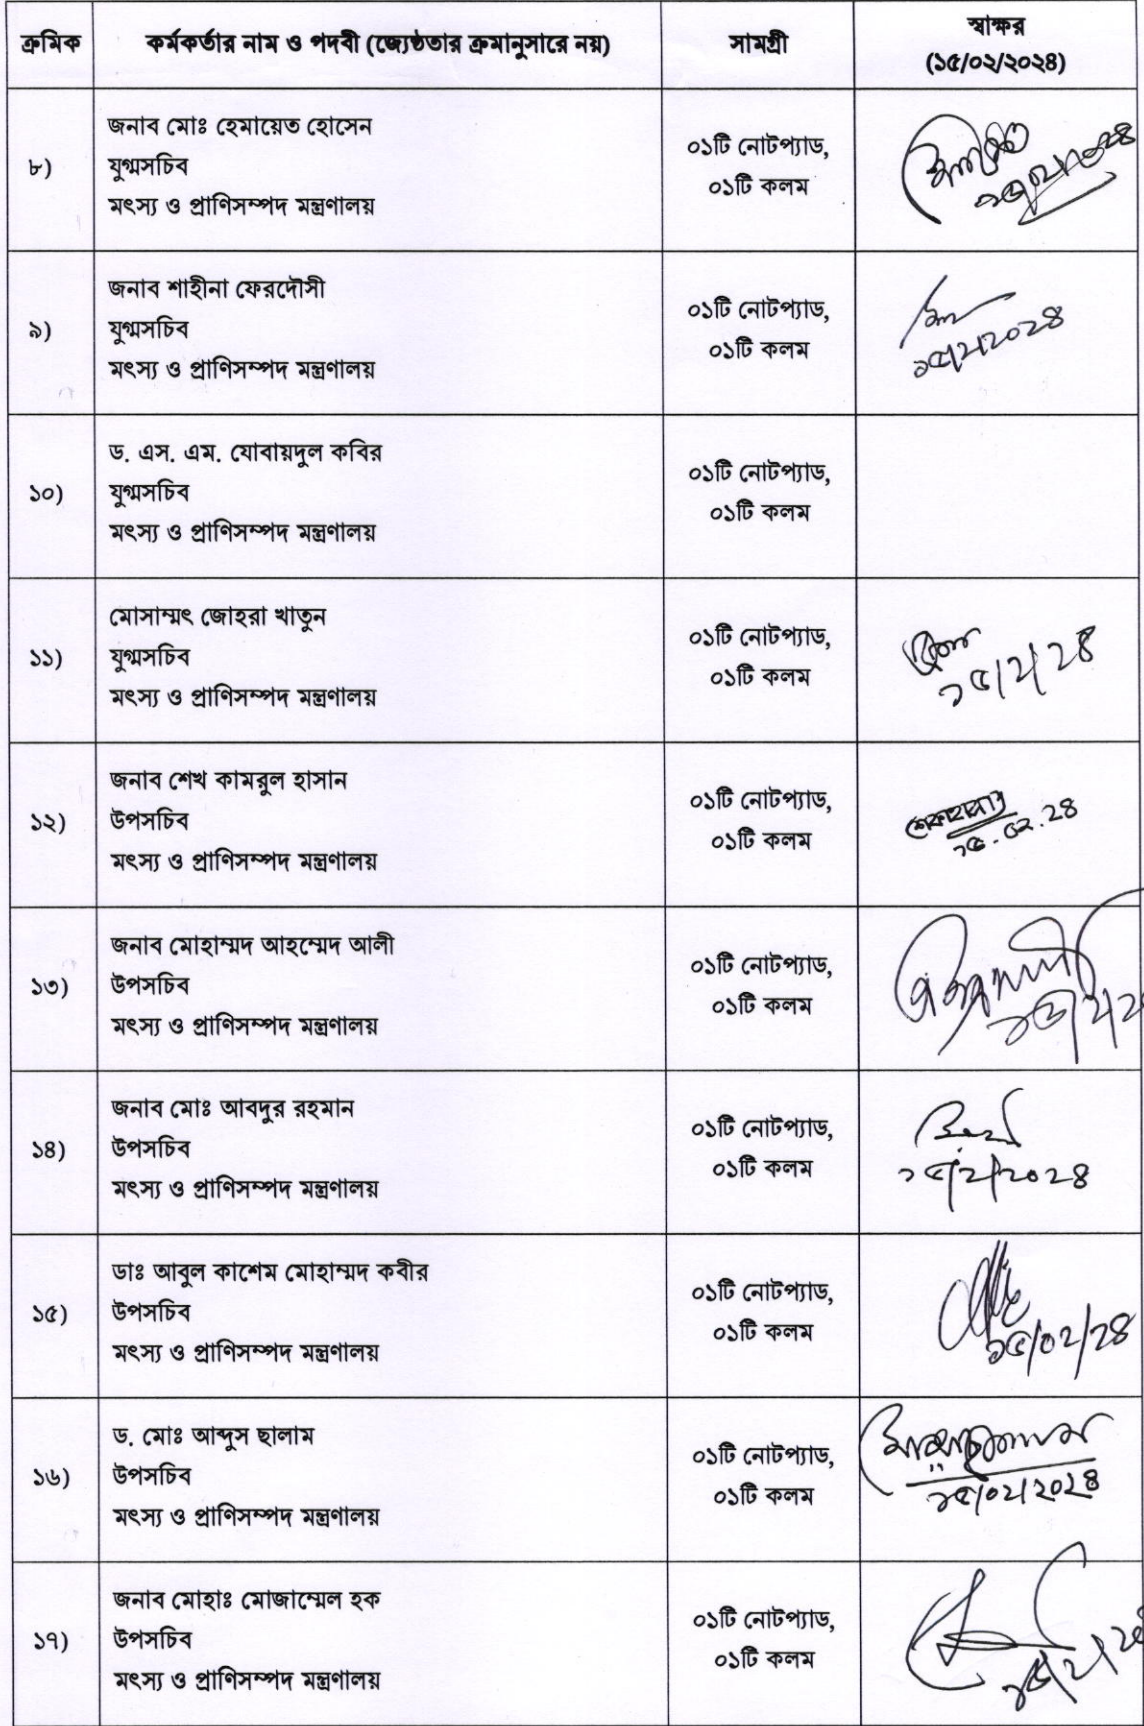 ক্রমিক
কর্মকর্তার নাম ও পদবী (জ্যেষ্ঠতার ক্রমানুসারে নয়)
সামগ্রী
স্বাক্ষর
(১৫/০২/২০২৪)
৮)
জনাব মোঃ হেমায়েত হোসেন
যুগ্মসচিব
মৎস্য ও প্রাণিসম্পদ মন্ত্রণালয়
০১টি নোটপ্যাড,
০১টি কলম
১৫/০২/২০২৪
৯)
জনাব শাহীনা ফেরদৌসী
যুগ্মসচিব
মৎস্য ও প্রাণিসম্পদ মন্ত্রণালয়
০১টি নোটপ্যাড,
০১টি কলম
১৫/২/২০২৪
১০)
ড. এস. এম. যোবায়দুল কবির
যুগ্মসচিব
মৎস্য ও প্রাণিসম্পদ মন্ত্রণালয়
০১টি নোটপ্যাড,
০১টি কলম
১১)
মোসাম্মৎ জোহরা খাতুন
যুগ্মসচিব
মৎস্য ও প্রাণিসম্পদ মন্ত্রণালয়
০১টি নোটপ্যাড,
০১টি কলম
১৫/২/২৪
১২)
জনাব শেখ কামরুল হাসান
উপসচিব
মৎস্য ও প্রাণিসম্পদ মন্ত্রণালয়
০১টি নোটপ্যাড,
০১টি কলম
১৫.০২.২৪
১৩)
জনাব মোহাম্মদ আহম্মেদ আলী
উপসচিব
মৎস্য ও প্রাণিসম্পদ মন্ত্রণালয়
০১টি নোটপ্যাড,
০১টি কলম
১৪)
জনাব মোঃ আবদুর রহমান
উপসচিব
মৎস্য ও প্রাণিসম্পদ মন্ত্রণালয়
০১টি নোটপ্যাড,
০১টি কলম
১৫/২/২০২৪
১৫)
ডাঃ আবুল কাশেম মোহাম্মদ কবীর
উপসচিব
মৎস্য ও প্রাণিসম্পদ মন্ত্রণালয়
০১টি নোটপ্যাড,
০১টি কলম
১৫/০২/২৪
১৬)
ড. মোঃ আব্দুস ছালাম
উপসচিব
মৎস্য ও প্রাণিসম্পদ মন্ত্রণালয়
০১টি নোটপ্যাড,
০১টি কলম
১৫/০২/২০২৪
১৭)
জনাব মোহাঃ মোজাম্মেল হক
উপসচিব
মৎস্য ও প্রাণিসম্পদ মন্ত্রণালয়
০১টি নোটপ্যাড,
০১টি কলম